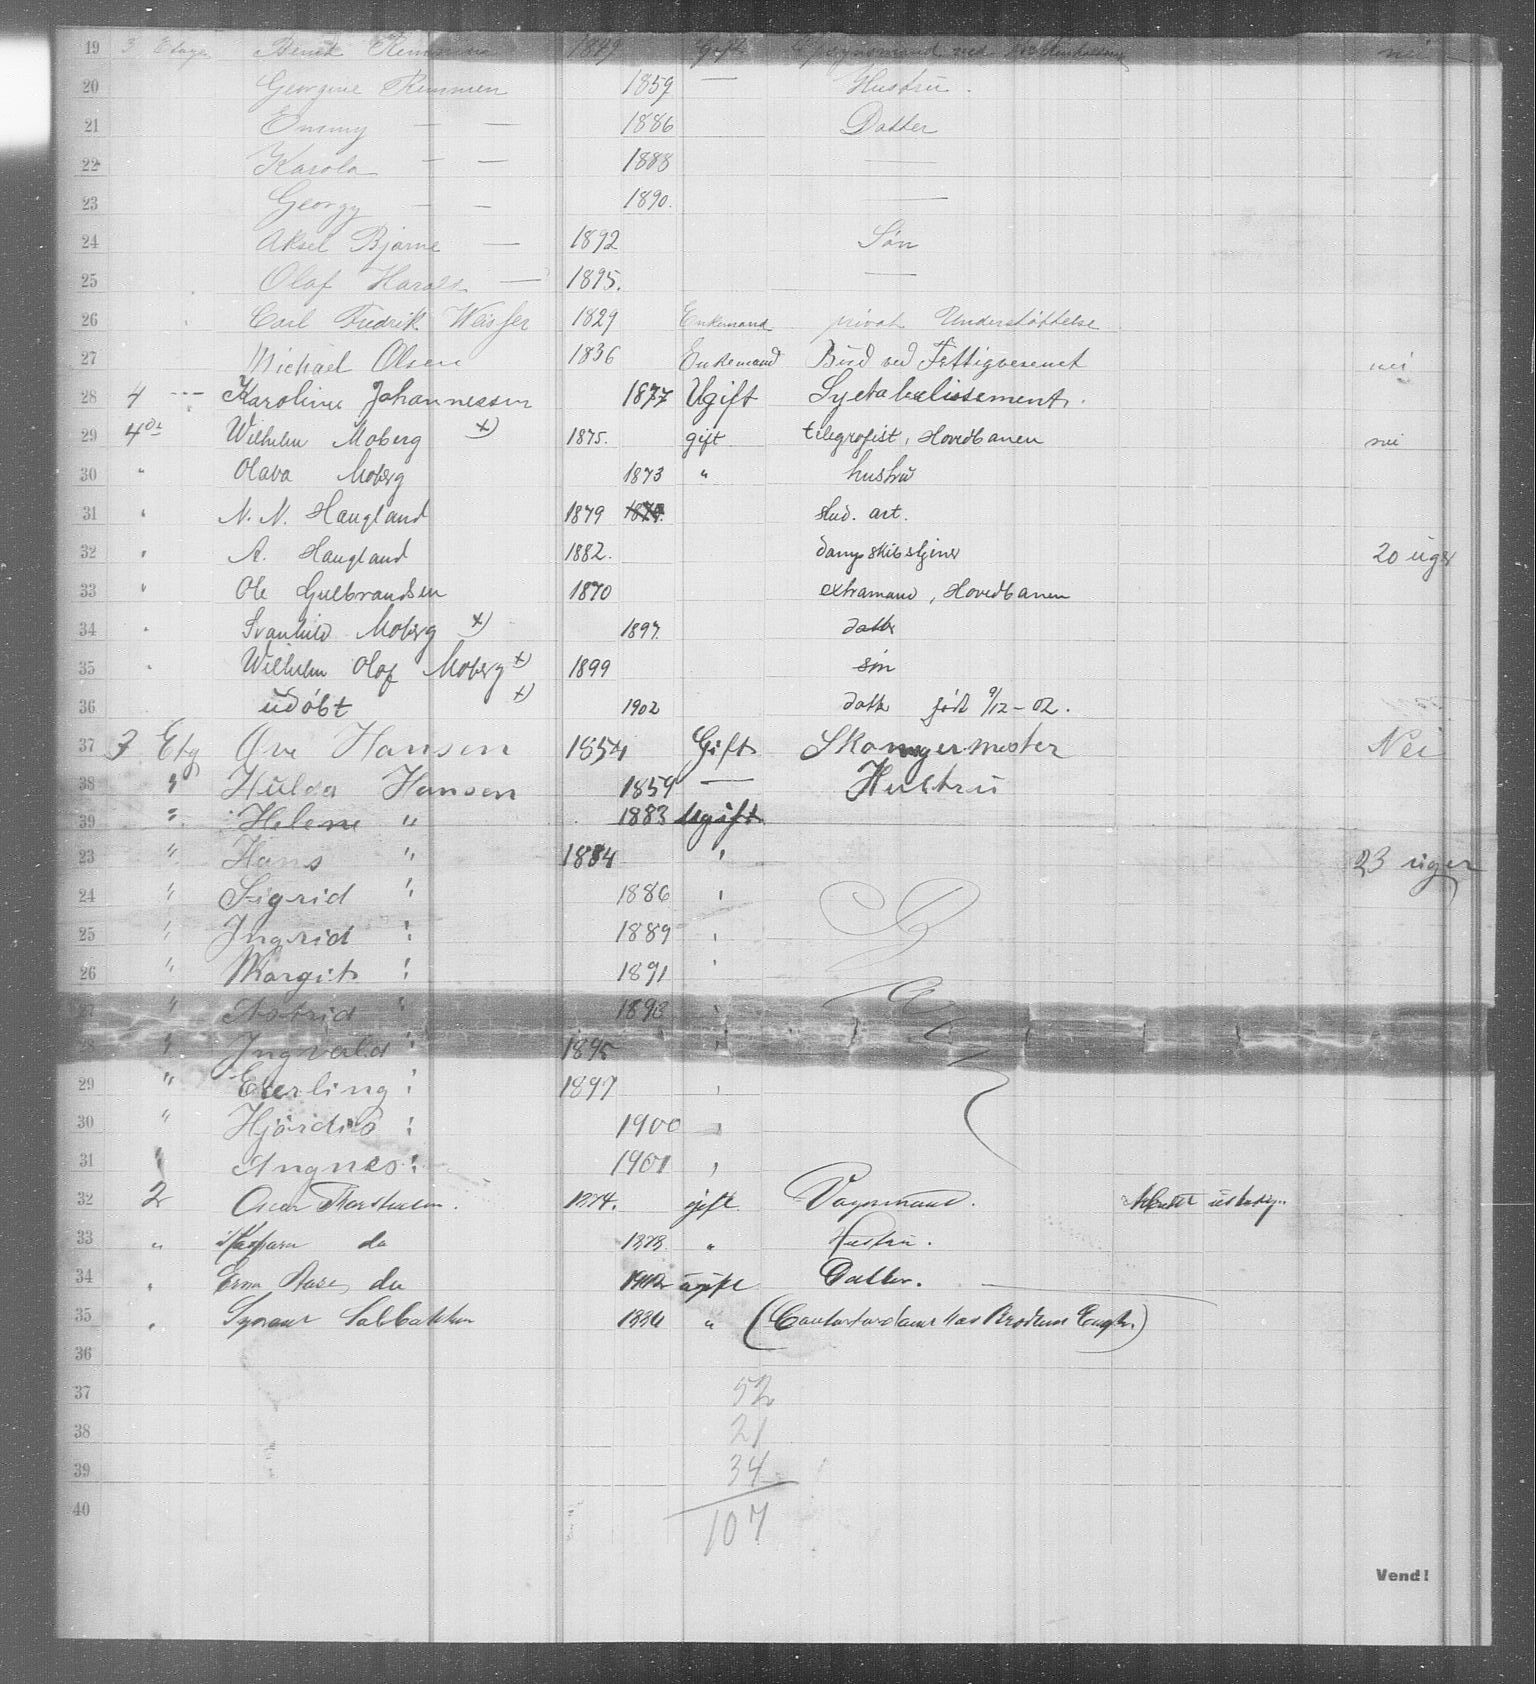 19 3 Etage 1849 Gift nei
20 Georgine Remmen 1859 — Hustru.
21 Emmy — — 1886 Datter
22 Karola — — 1888 —
23 Georgy — — 1890. —
24 Aksel Bjarne — 1892 Søn
25 Olaf Harald — 1895. —
26 Carl Fredrik 1829 Enkemand privat Understøttelse
27 Michael Olsen 1836 Enkemand Bud ved Fattigvesenet nei
28 4 --- Karoline Johannessen 1877 Ugift Syetablissement.
29 4 Wilhelm Moberg x) 1875. gift telegrafist, Hovedbanen nei
30 " Olava Moberg 1873 " hustru
31 " N. N. Haugland 1879 stud. art.
32 " A. Haugland 1882. 20 uger
33 " Ole Gulbrandsen 1870 extramand, Hovedbanen
34 " Svanhild Moberg x) 1897. datter
35 " Wilhelm Olaf Moberg x) 1899 søn
36 udöbt x) 1902 datter født 9/12 - 02.
37 3 Etg Hansen 1854 Gift Skomagermester Nei
38 " Hulda Hansen 1859 — Hustru
39 " Helene " 1883 Ugift
23 " Hans " 1884 " 23 uger
24 " Sigrid " 1886 "
25 " Ingrid " 1889 "
26 " Margit " 1891 "
27 " Astrid " 1893 "
28 " Ingvald " 1895 "
29 " Eerling " 1897 "
30 " Hjördis " 1900 "
31 " Angnes " 1901 "
32 2 Oscar 1874. gift
33 " do " Hustru.
34 " do ugift Datter. —
35 " "
36
37 52
38 21
39 34
40 107
Vend!